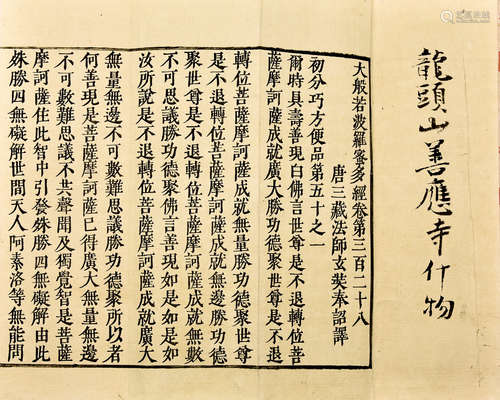 龍頭山善應寺什物
大般若波羅蜜多經卷第三百二十八
唐三藏法師玄奘奉詔譯
初分巧方便品第五十之一
爾時具壽善現白佛言世尊是不退轉位菩
薩摩訶薩成就廣大勝功德聚世尊是不退
轉位菩薩摩訶薩成就無量勝功德聚世尊
是不退轉位菩薩摩訶薩成就無邊勝功德
聚世尊是不退轉位菩薩摩訶薩成就無數
不可思議勝功德聚佛言善現如是如是如
汝所說是不退轉位菩薩摩訶薩成就廣大
無量無邊不可數難思議勝功德聚所以者
何善現是菩薩摩訶薩已得廣大無量無邊
不可數難思議不共聲聞及獨覺智是菩薩
摩訶薩住此智中引發殊勝四無礙解由此
殊勝四無礙解世間天人阿素洛等無能問